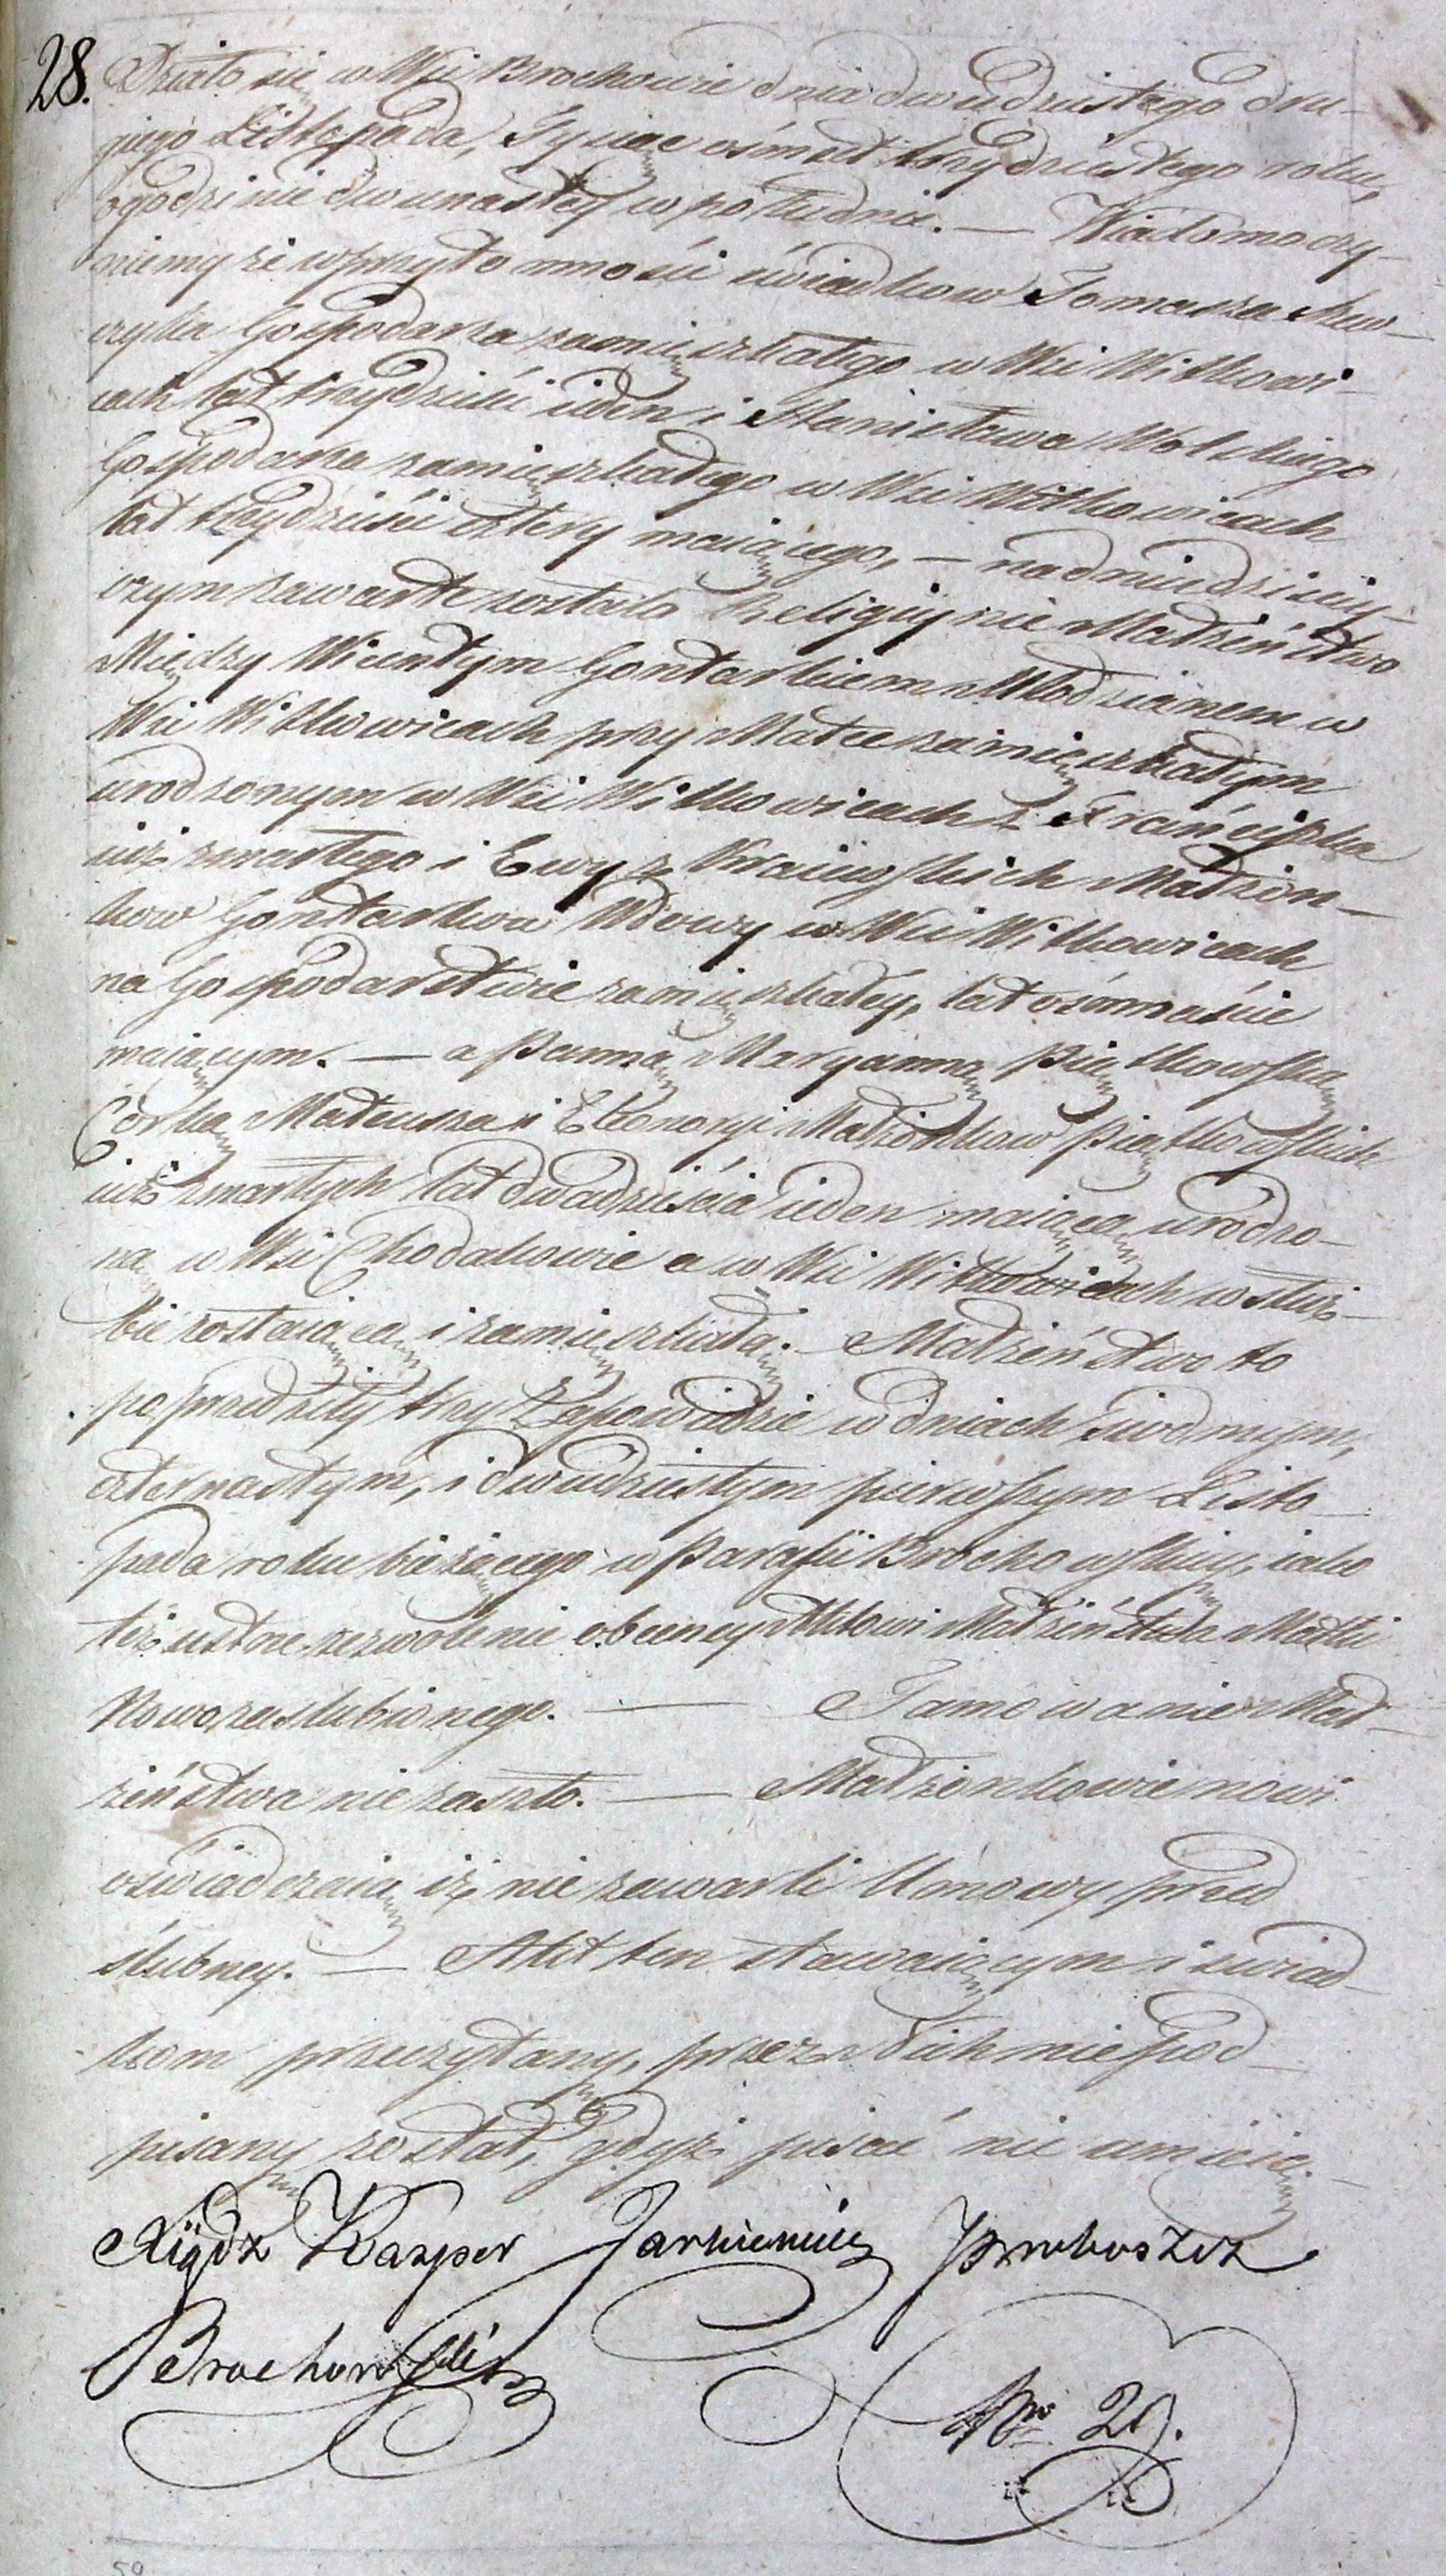 28. Działo się w Wsi Brochowie dnia dwudziestego dru-
giego Listopada, Tysiąc ośmset trzydziestego roku,
ogodzinie dwunastey w południe. — Wiadomo czy-
niemy że wprzytomności świadkow Tomasza
czyka Gospodarza zamięszkałego w Wsi Witkowi-
cach lat trzydzieści ieden i Stanisława Wolskiego
Gospodarza zamięszkałego w Wsi Witkowicach
lat trzydzieści cztery maiącego, — nadniu dzisiey-
szym zawarte zostało Religijnie Małżeństwo
Między Wicentym Gontarkiem Młodzianem w
Wsi Witkowicach przy Matce zamięszkałym
urodzonym w Wsi Witkowicach z Franciszka
iuż zmarłego i Ewy z Małżon-
kow Gontarkow Wdowy w Wsi Witkowicach
na Gospodarstwie zamięszkałey, lat ośmnaście
maiącym. — a Panną Maryanną Piątkowską
Corką Mateusza i Eleonory Małżonkow Piątkowskich
iuż zmarłych lat dwadzieścia ieden maiącą urodzo-
ną w Wsi Chodakowie a w Wsi Witkowicach w służ-
bie zostaiącą i zamięszkałą. Małżeństwo to
poprzedziły trzy Zapowiedzie w dniach siodmym,
czternastym, i dwudziestym pierwszym Listo-
pada roku bieżącego w Parafii Brochowskiey, iako
też ustne zezwolenie obecney Aktowi Małżeństwa Matki
Nowozaslubionego. — Tamowanie Mał-
żeństwa nie zaszło. — Małżonkowie nowi
oświadczaią iż nie zawarli Umowy przed
ślubney. — Akt ten stawaiącym i świad-
kom przeczytany, przez Nich nie pod-
pisany został, gdyż pisać nie umieią. —
Xiądz Kasper Proboszcz
Brochowski
Nro 29.
59